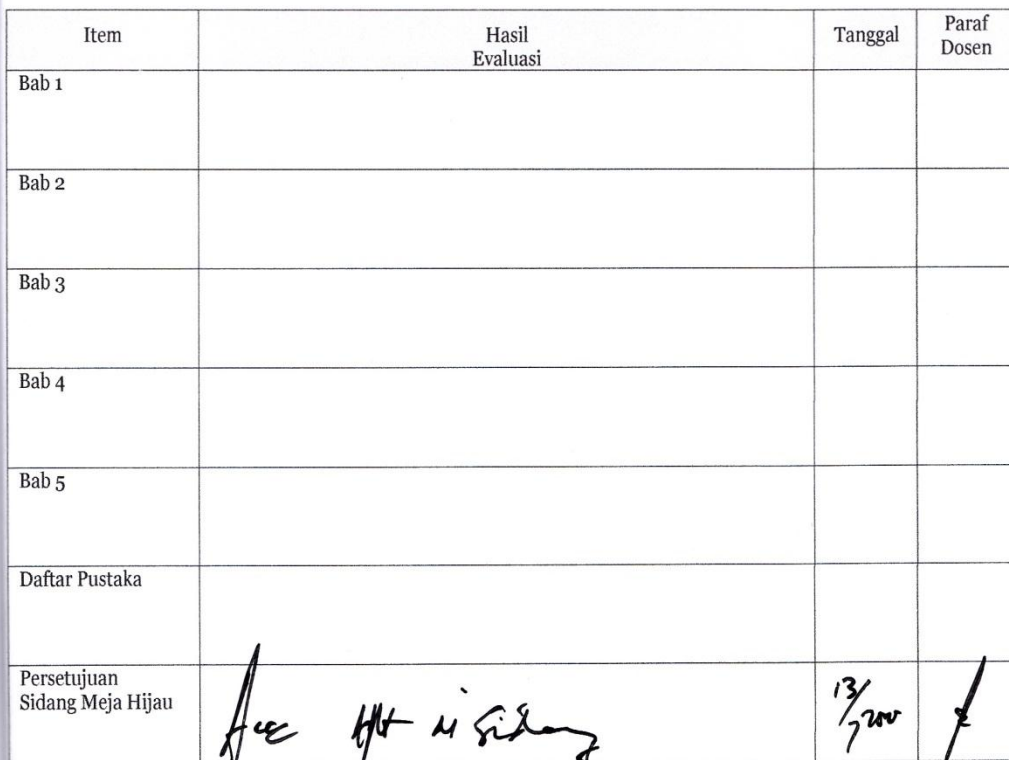 Item
Hasil
Evaluasi
Tanggal
Paraf
Dosen
Bab 1
Bab 2
Bab 3
Bab 4
Bab 5
Daftar Pustaka
Persetujuan
Sidang Meja Hijau
Acc di Sidang
13/7